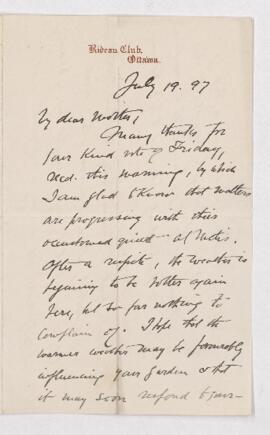 Rideau Club,
Ottawa.
July 19. 97
My dear Mother,
Many thanks for
your kind note of Friday,
recd. this morning, by which
I am glad to know that matters
are progressing with their
accustomed quiet at
After a respite, the weather is
beginning to be hotter again
here, but so far nothing to
complain of. I hope that the
warmer weather may be favourably
influencing your garden & that
it may soon respond to your